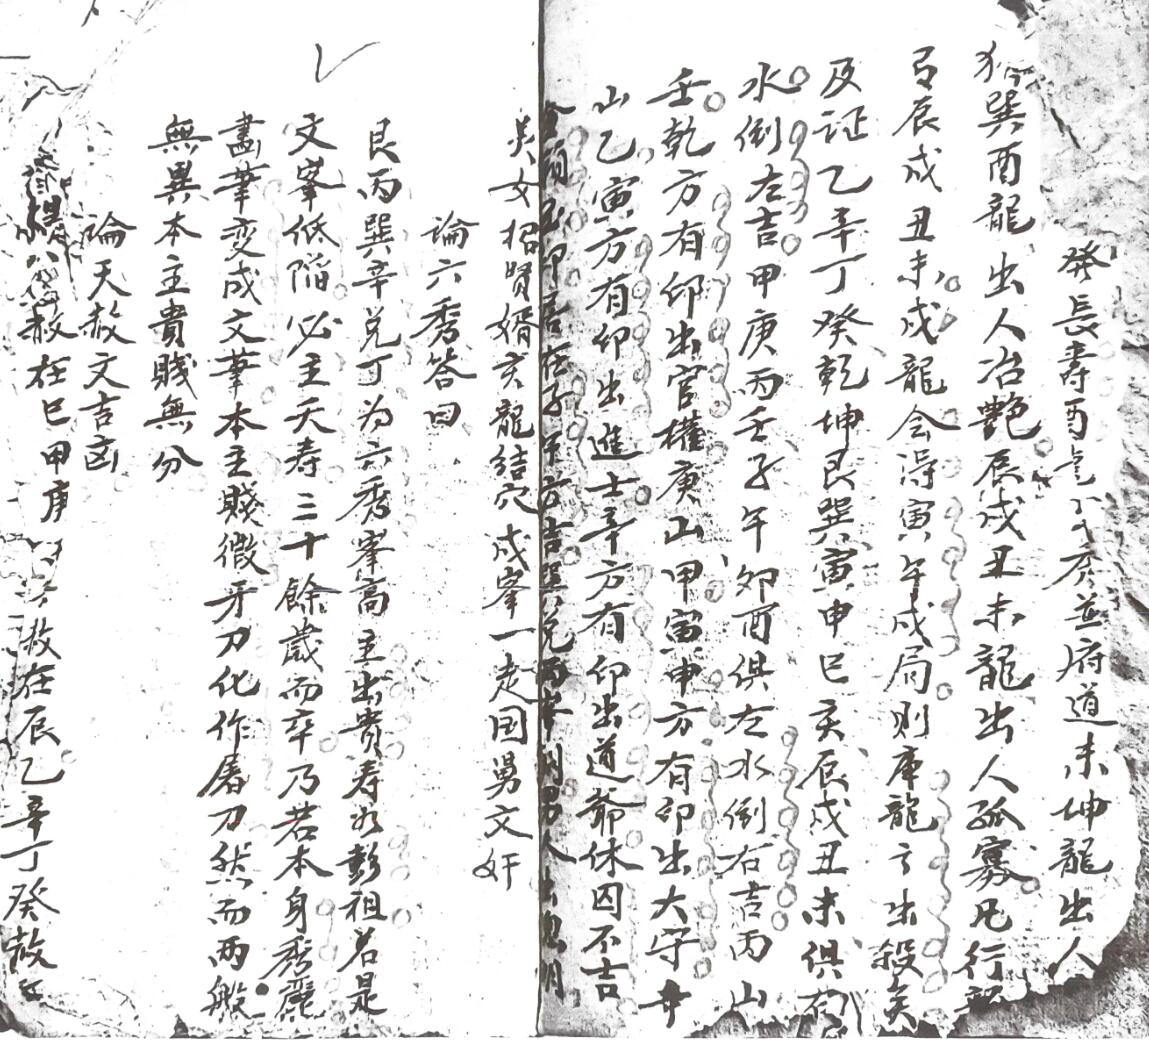 癸長壽酉 秀並府道未坤龍出人
巽酉龍出人冶艷辰戌丑未龍出人孤寡凡行龍
辰戌丑未戌龍会得寅午戌局則庫龍亦出殺矣
及証乙辛丁癸乾坤艮巽寅申巳亥辰戌丑未俱右
水倒左吉甲庚丙壬子午卯酉俱左水倒右吉丙山
壬乾方有印出官權庚山甲寅申方有印出大守廾
山乙寅方有印出進士辛方有印出道爺休囚不吉
印若在子午方吉巽兌丙 男人出
美女招賢婿亥龍結穴成峯一走囯舅文奸
論六秀答曰
艮丙巽辛兌丁为六秀峯高主出貴寿如彭祖若是
文峯低陷必主夭寿三十餘歲而卒乃若本身秀麗
畫筆变成文筆本主賤微牙刀化作屠刀然而两般
無異本主貴賤無分
論天赦文吉凶
赦在巳甲庚 赦在辰乙辛丁癸赦